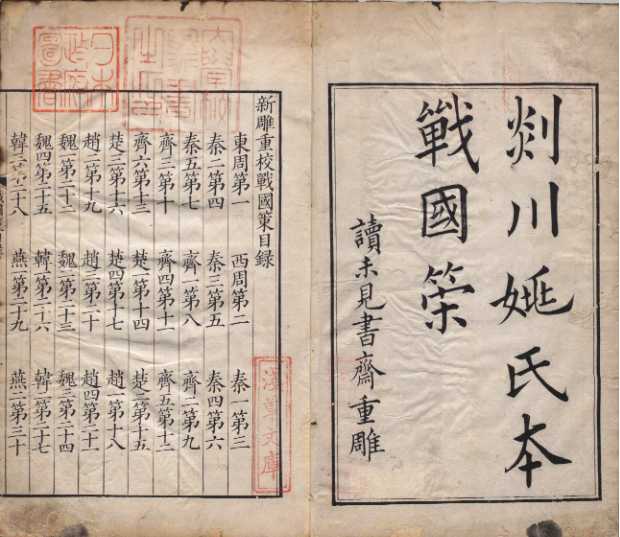 剡川姚氏本
戰國筞
讀未見書齋重雕
大學校圖書之印
日本政府圖書
新雕重校戰國策目録
東周第一 西周第二 秦一第三
秦二第四 秦三第五 秦四第六
秦五第七 齊一第八 齊二第九
齊三第十 齊四第十一 齊五第十二
齊六第十三 楚一第十四 楚二第十五
楚三第十六 楚四第十七 趙一第十八
趙二第十九 趙三第二十 趙四第二十一
魏一第二十二 魏二第二十三 魏三第二十四
魏四第二十五 韓一第二十六 韓二第二十七
韓三第二十八 燕一第二十九 燕二第三十
淺草文庫